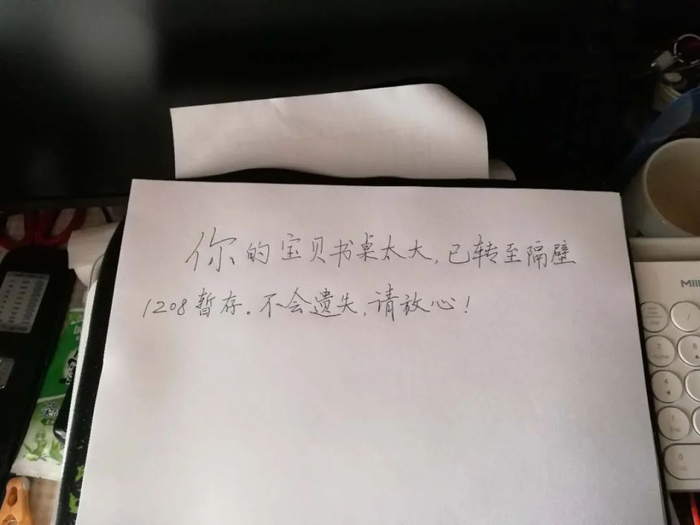 你的宝贝书桌太大,已转至隔壁
1208暂存.不会遗失.请放心!
Mill